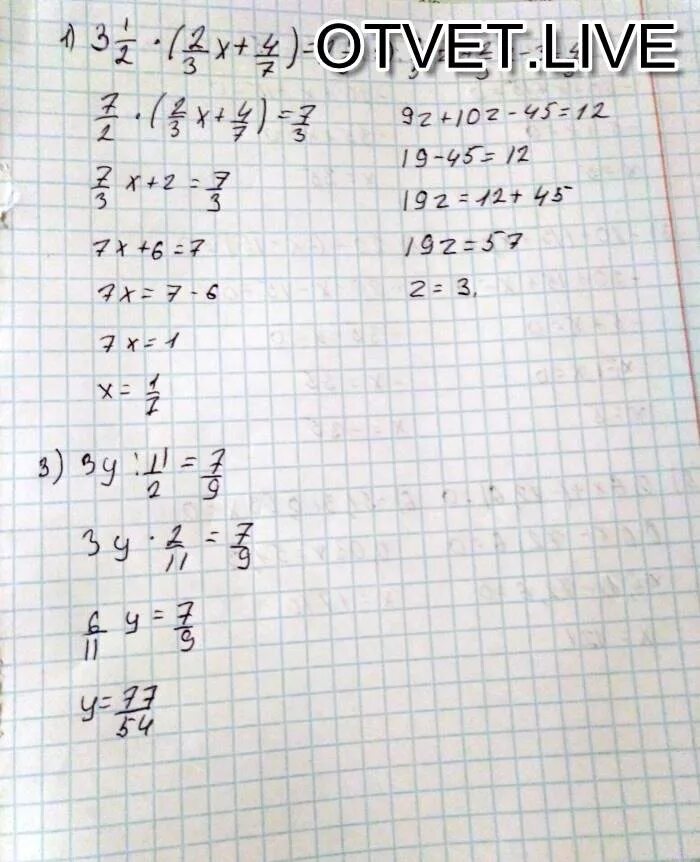 1) 3 1/2 · (2/3 x + 4/7) =
OTVET.LIVE
7/2 · (2/3 x + 4/7) = 7/3
7/3 x + 2 = 7/3
7x + 6 = 7
7x = 7 - 6
7x = 1
x = 1/7
9z + 10z - 45 = 12
19 - 45 = 12
19z = 12 + 45
19z = 57
z = 3.
3) 3y : 11/2 = 7/9
3y · 2/11 = 7/9
6/11 y = 7/9
y = 77/54